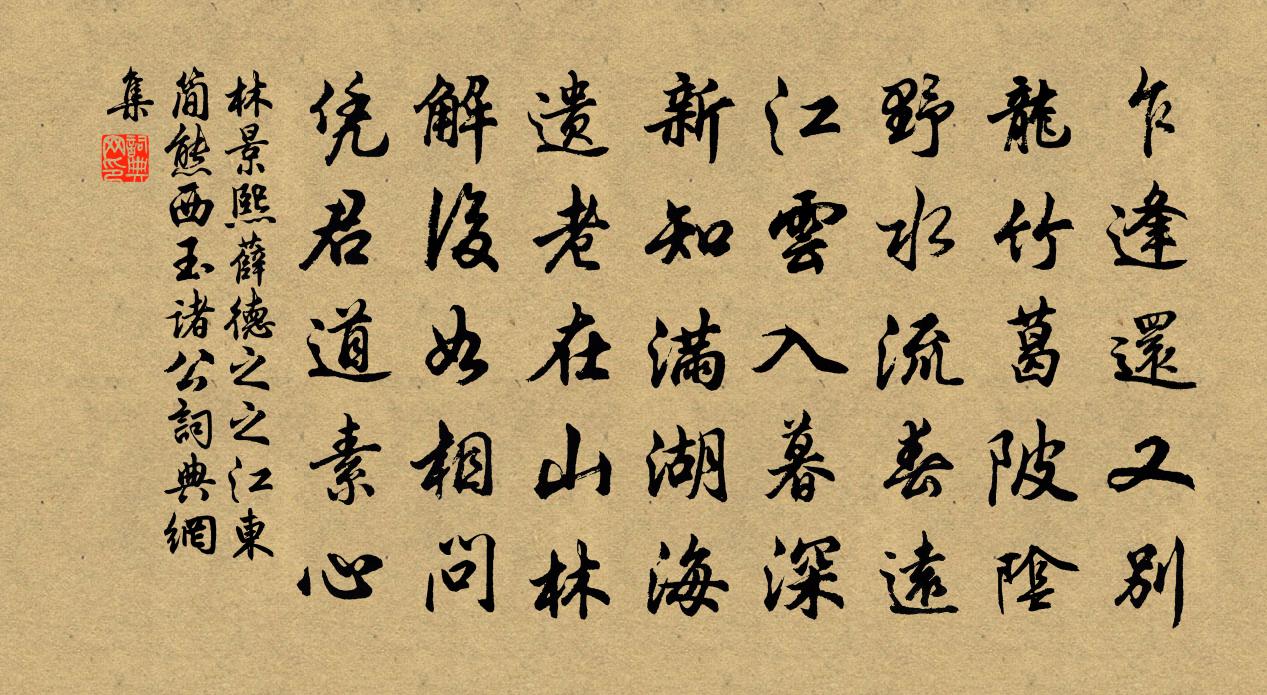 乍逢還又別
龍竹葛陂陰
野水流春遠
江雲入暮深
新知滿湖海
遗老在山林
解後如相問
凭君道素心
林景熙薛德之之江東
简熊西玉诸公詞典網
集
詞典網印